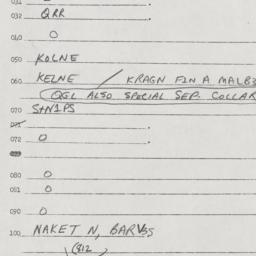 031
032 QRR
040 O
050 KOLNE
060 KELNE / KRAGN FIN A MALB
(QGL ALSO SPECIAL SEP. COLLAR
070 S+N1PS
071
072 O
080 O
081 O
090 O
100 NAKET N, BARVSS
(812